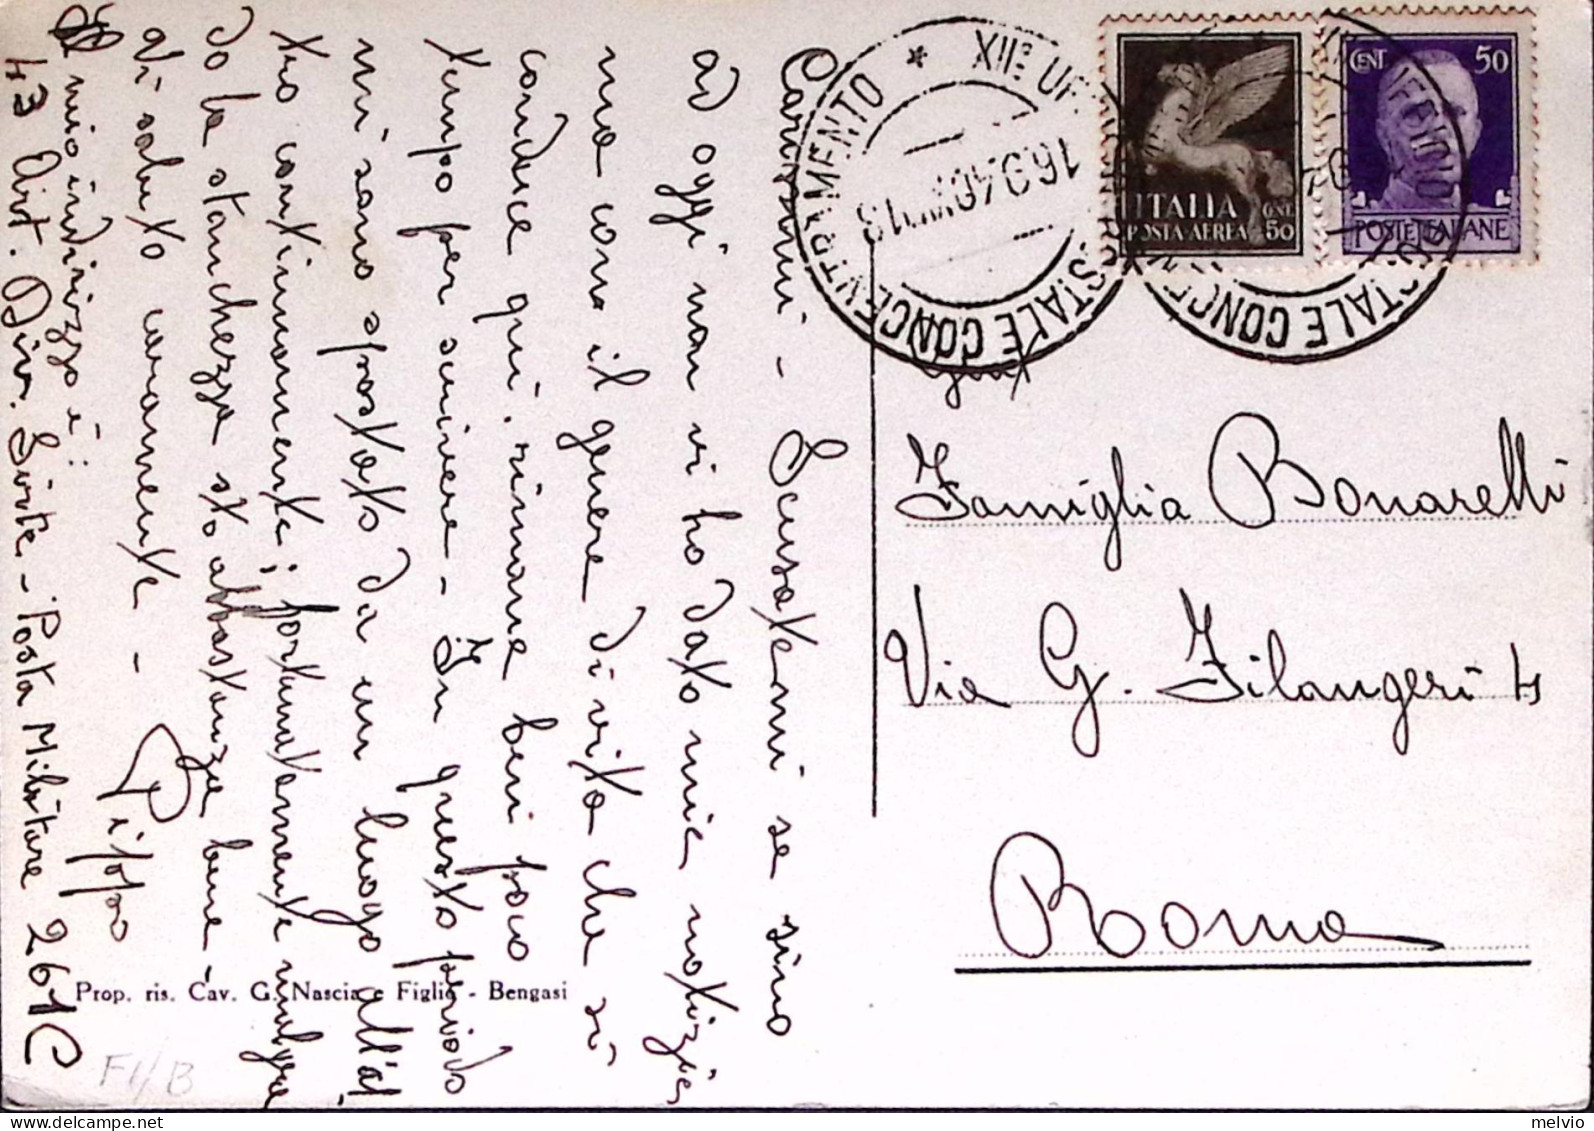 Carissimi - Scusatemi se sino
ad oggi non vi ho dato mie notizie,
ma con il genere di vita che si
conduce qui, rimane ben poco
tempo per scrivere - In questo periodo
mi sono spostato da un luogo all'al
tro continuamente; fortunatamente malgra
do la stanchezza sto abbastanza bene -
Vi saluto caramente -
Pippo
Il mio indirizzo è:
43 Art. Div. Sirte - Posta Militare 261 C
Prop. ris. Cav. G. Nascia e Figlio - Bengasi
F1/B
XII° UFFICIO POSTALE CONCENTRAMENTO *
16.9.40 XVIII 18
ITALIA
POSTA AEREA
CENT. 50
CENT 50
POSTE ITALIANE
Famiglia Bonarelli
Via G. Filangeri 4
Roma